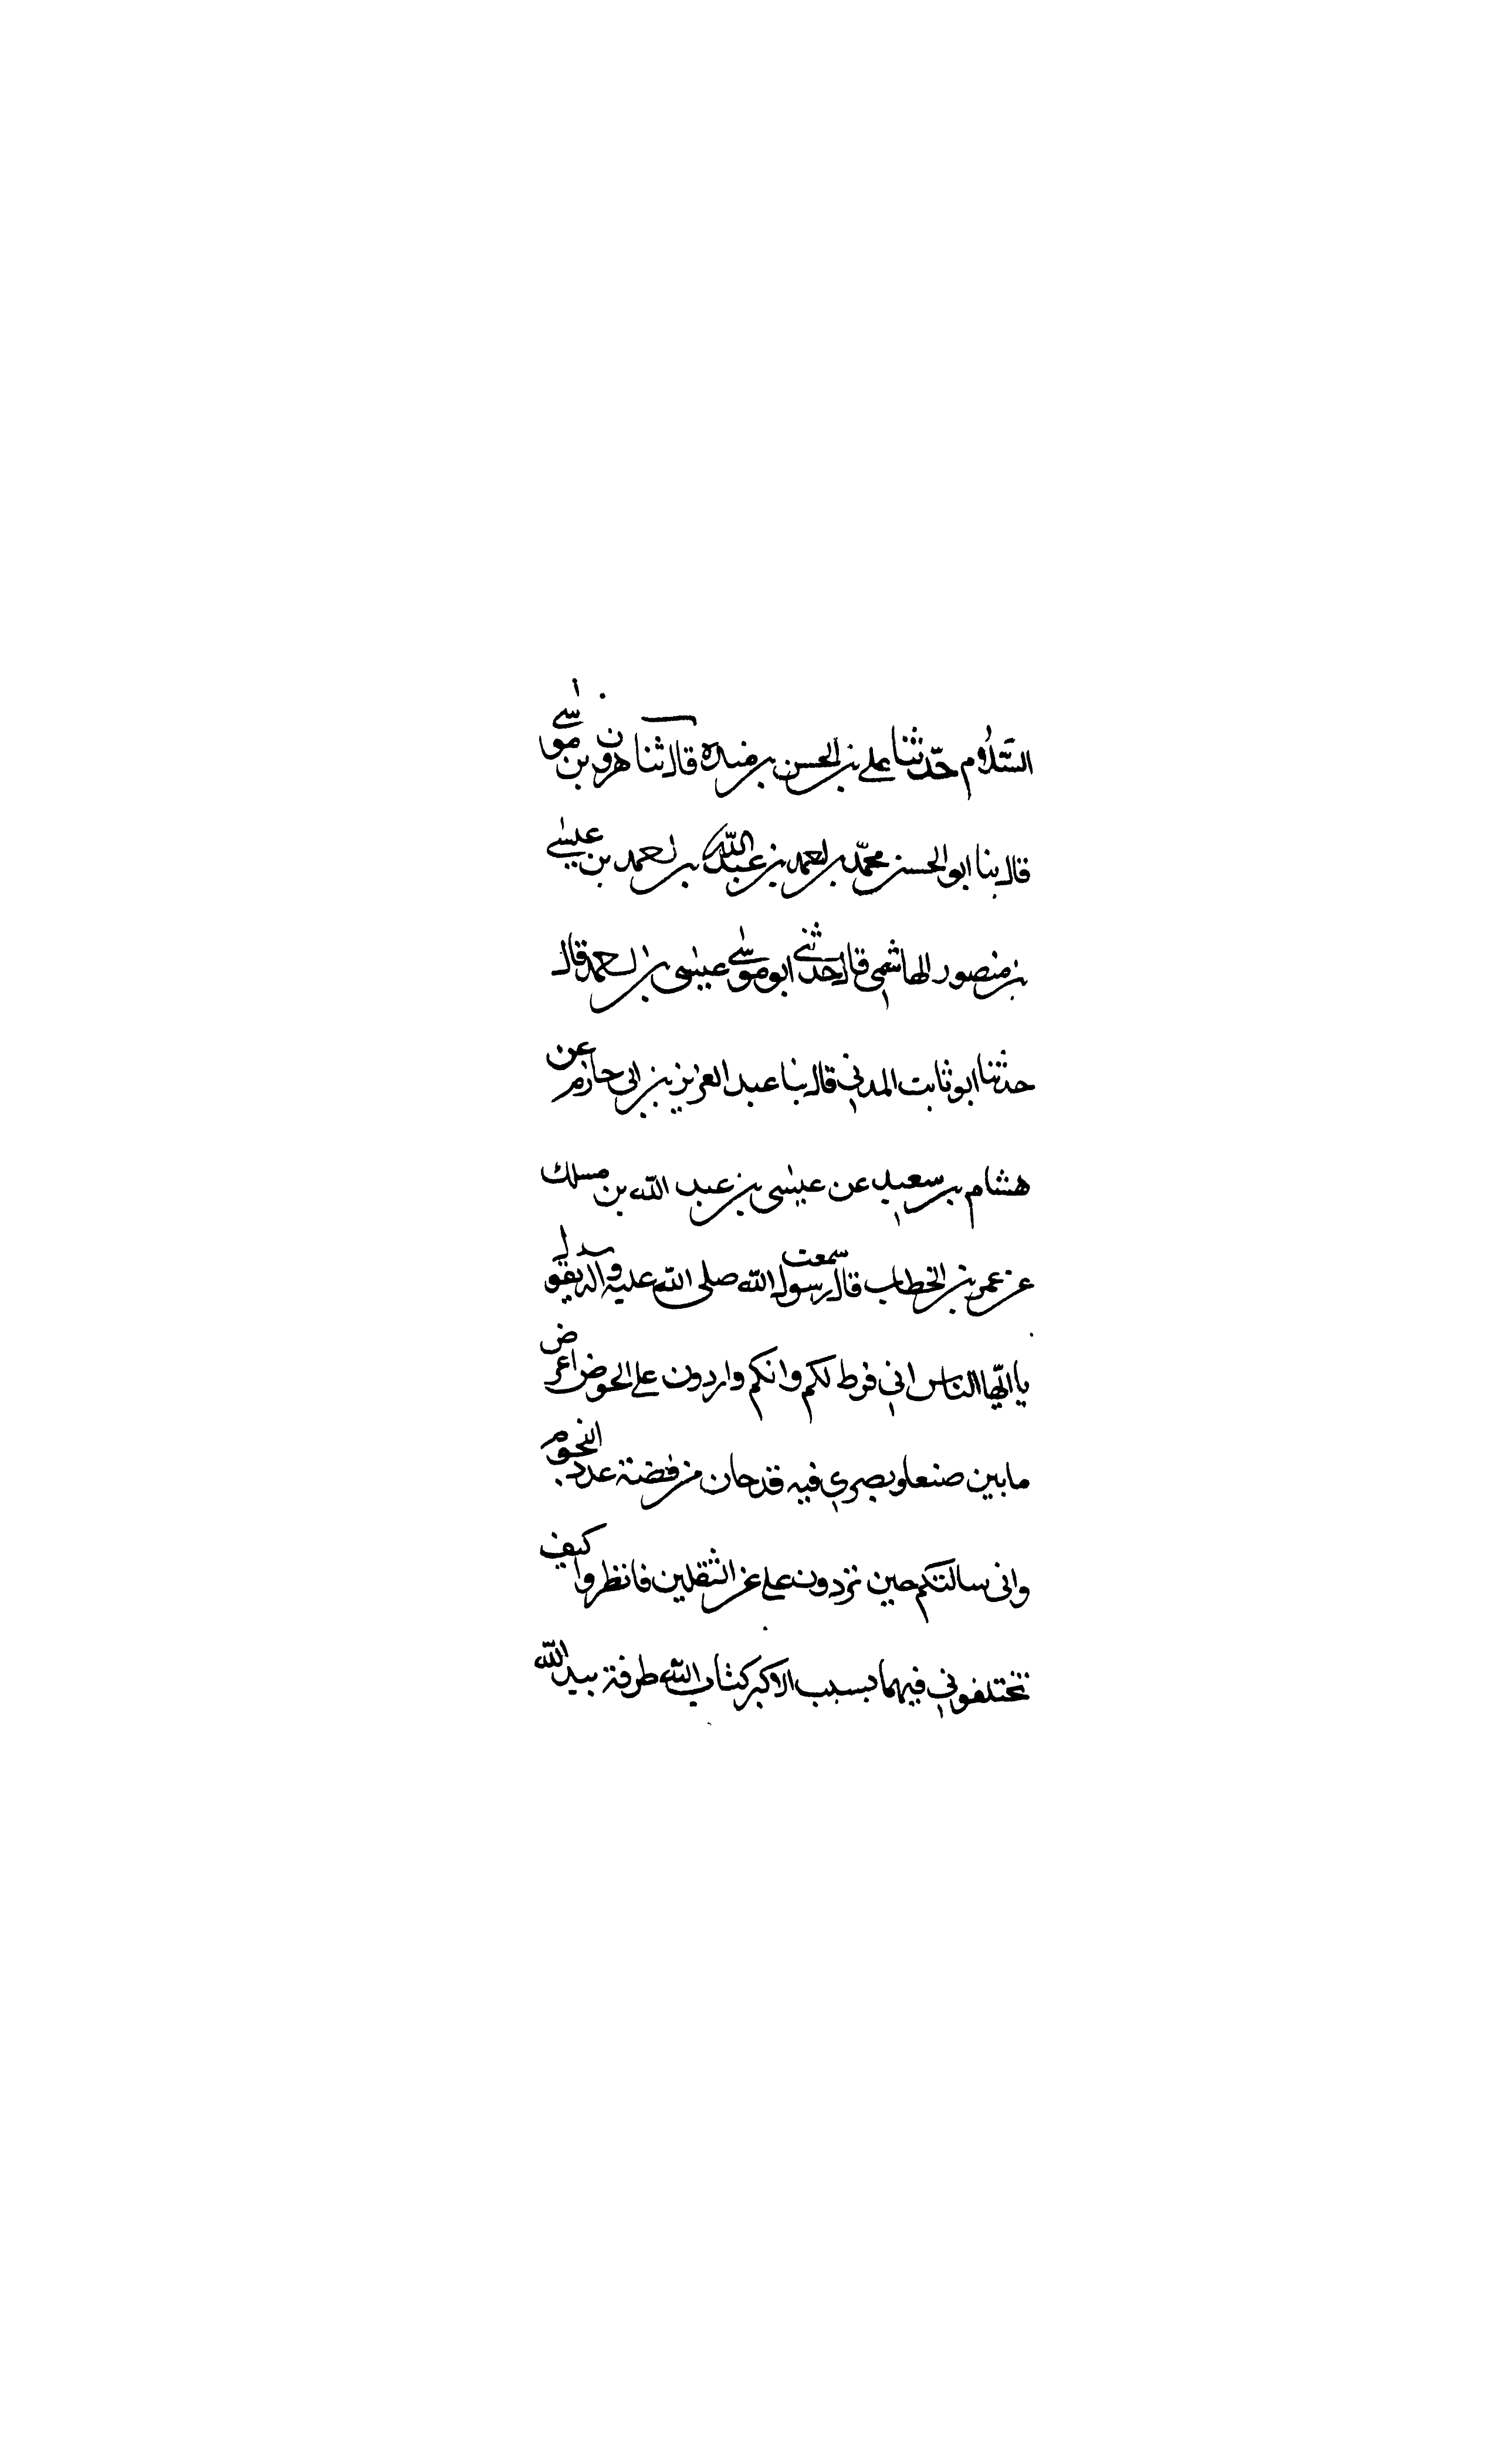 السَّلام حدّثنا علي بن الحسن بن منده قال ثنا هرون بن موسى
قال بنا ابو الحسن محمّد بن احمد بن عبد الله بن احمد بن عيسى
بن منصور الهاشمي قال حدثني ابو موسى عيسى بن احمد قال
حدثنا ابو ثابت المدني قال بنا عبد العزيز بن ابي حازم عن
هشام بن سعيد عن عيسى بن عبد الله بن مسلك
عن عمر بن الخطاب قال سمعت رسول الله صلى الله عليه وآله يقول
يا ايّها الناس اني فرط لكم وانكم واردون علي الحوض اعرض
ما بين صنعا وبصري فيه قدحان من فضة عدد النجوم
واني سالتكم حين تردون علي عن الثقلين فانظروا كيف
تختلفوني فيهما بسبب الاكبر كتاب الله طرفة بيد الله